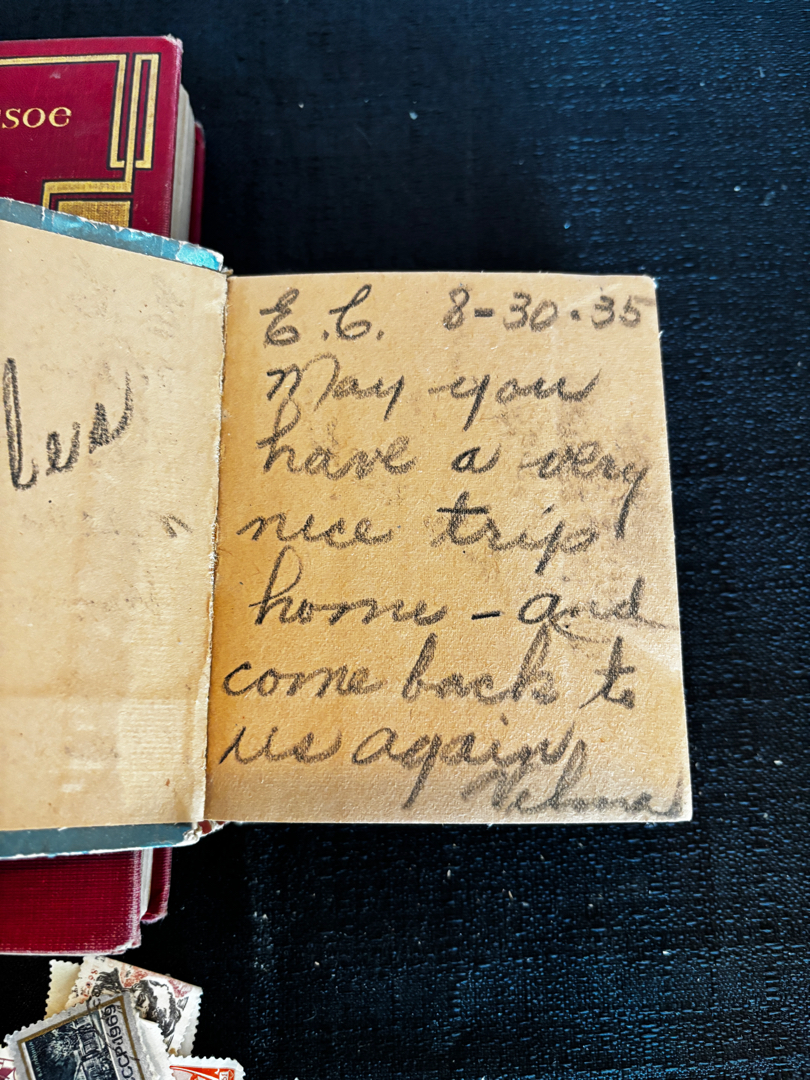 E.C. 8-30-35
May you
have a very
nice trip
home - and
come back to
us again
Velma
CCCP 1969